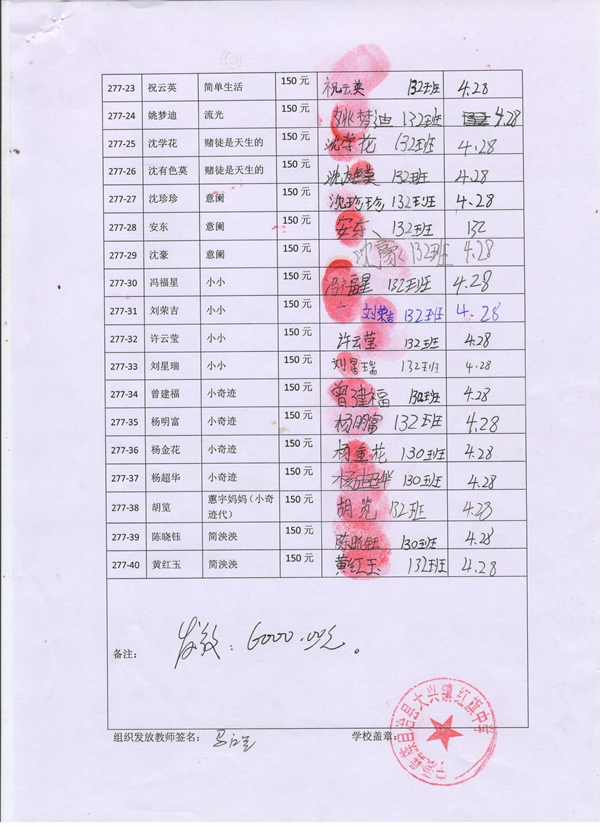 277-23 祝云英 简单生活 150 元 祝云英 132班 4.28
277-24 姚梦迪 流光 150 元 姚梦迪 132班 4.28
277-25 沈学花 赌徒是天生的 150 元 沈学花 132班 4.28
277-26 沈有色莫 赌徒是天生的 150 元 132班 4.28
277-27 沈珍珍 意阑 150 元 沈珍珍 132班 4.28
277-28 安东 意阑 150 元 安东 132班 132
277-29 沈豪 意阑 150 元 沈豪 132班 4.28
277-30 冯福星 小小 150 元 冯福星 132班 4.28
277-31 刘荣吉 小小 150 元 刘荣吉 132班 4.28
277-32 许云莹 小小 150 元 许云莹 132班 4.28
277-33 刘星瑞 小小 150 元 刘星瑞 132班 4.28
277-34 曾建福 小奇迹 150 元 曾建福 132班 4.28
277-35 杨明富 小奇迹 150 元 杨明富 132班 4.28
277-36 杨金花 小奇迹 150 元 杨金花 130班 4.28
277-37 杨超华 小奇迹 150 元 杨超华 130班 4.28
277-38 胡览 蕙宇妈妈（小奇迹代） 150 元 胡览 132班 4.28
277-39 陈晓钰 简泱泱 150 元 陈晓钰 130班 4.28
277-40 黄红玉 简泱泱 150 元 黄红玉 132班 4.28
备注： 发放：6000.00元。
组织发放教师签名： 学校盖章：
族自治县大兴镇红旗中学